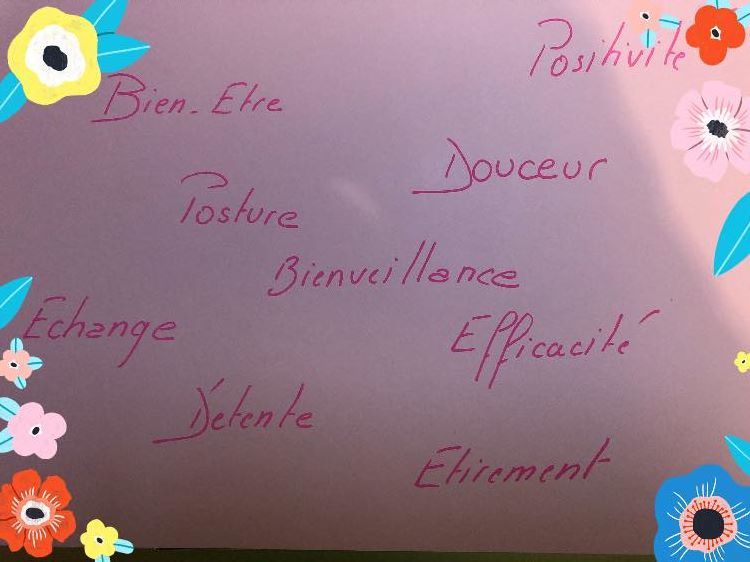 Positivité
Bien-Etre
Douceur
Posture
Bienveillance
Echange
Efficacité
Détente
Etirement